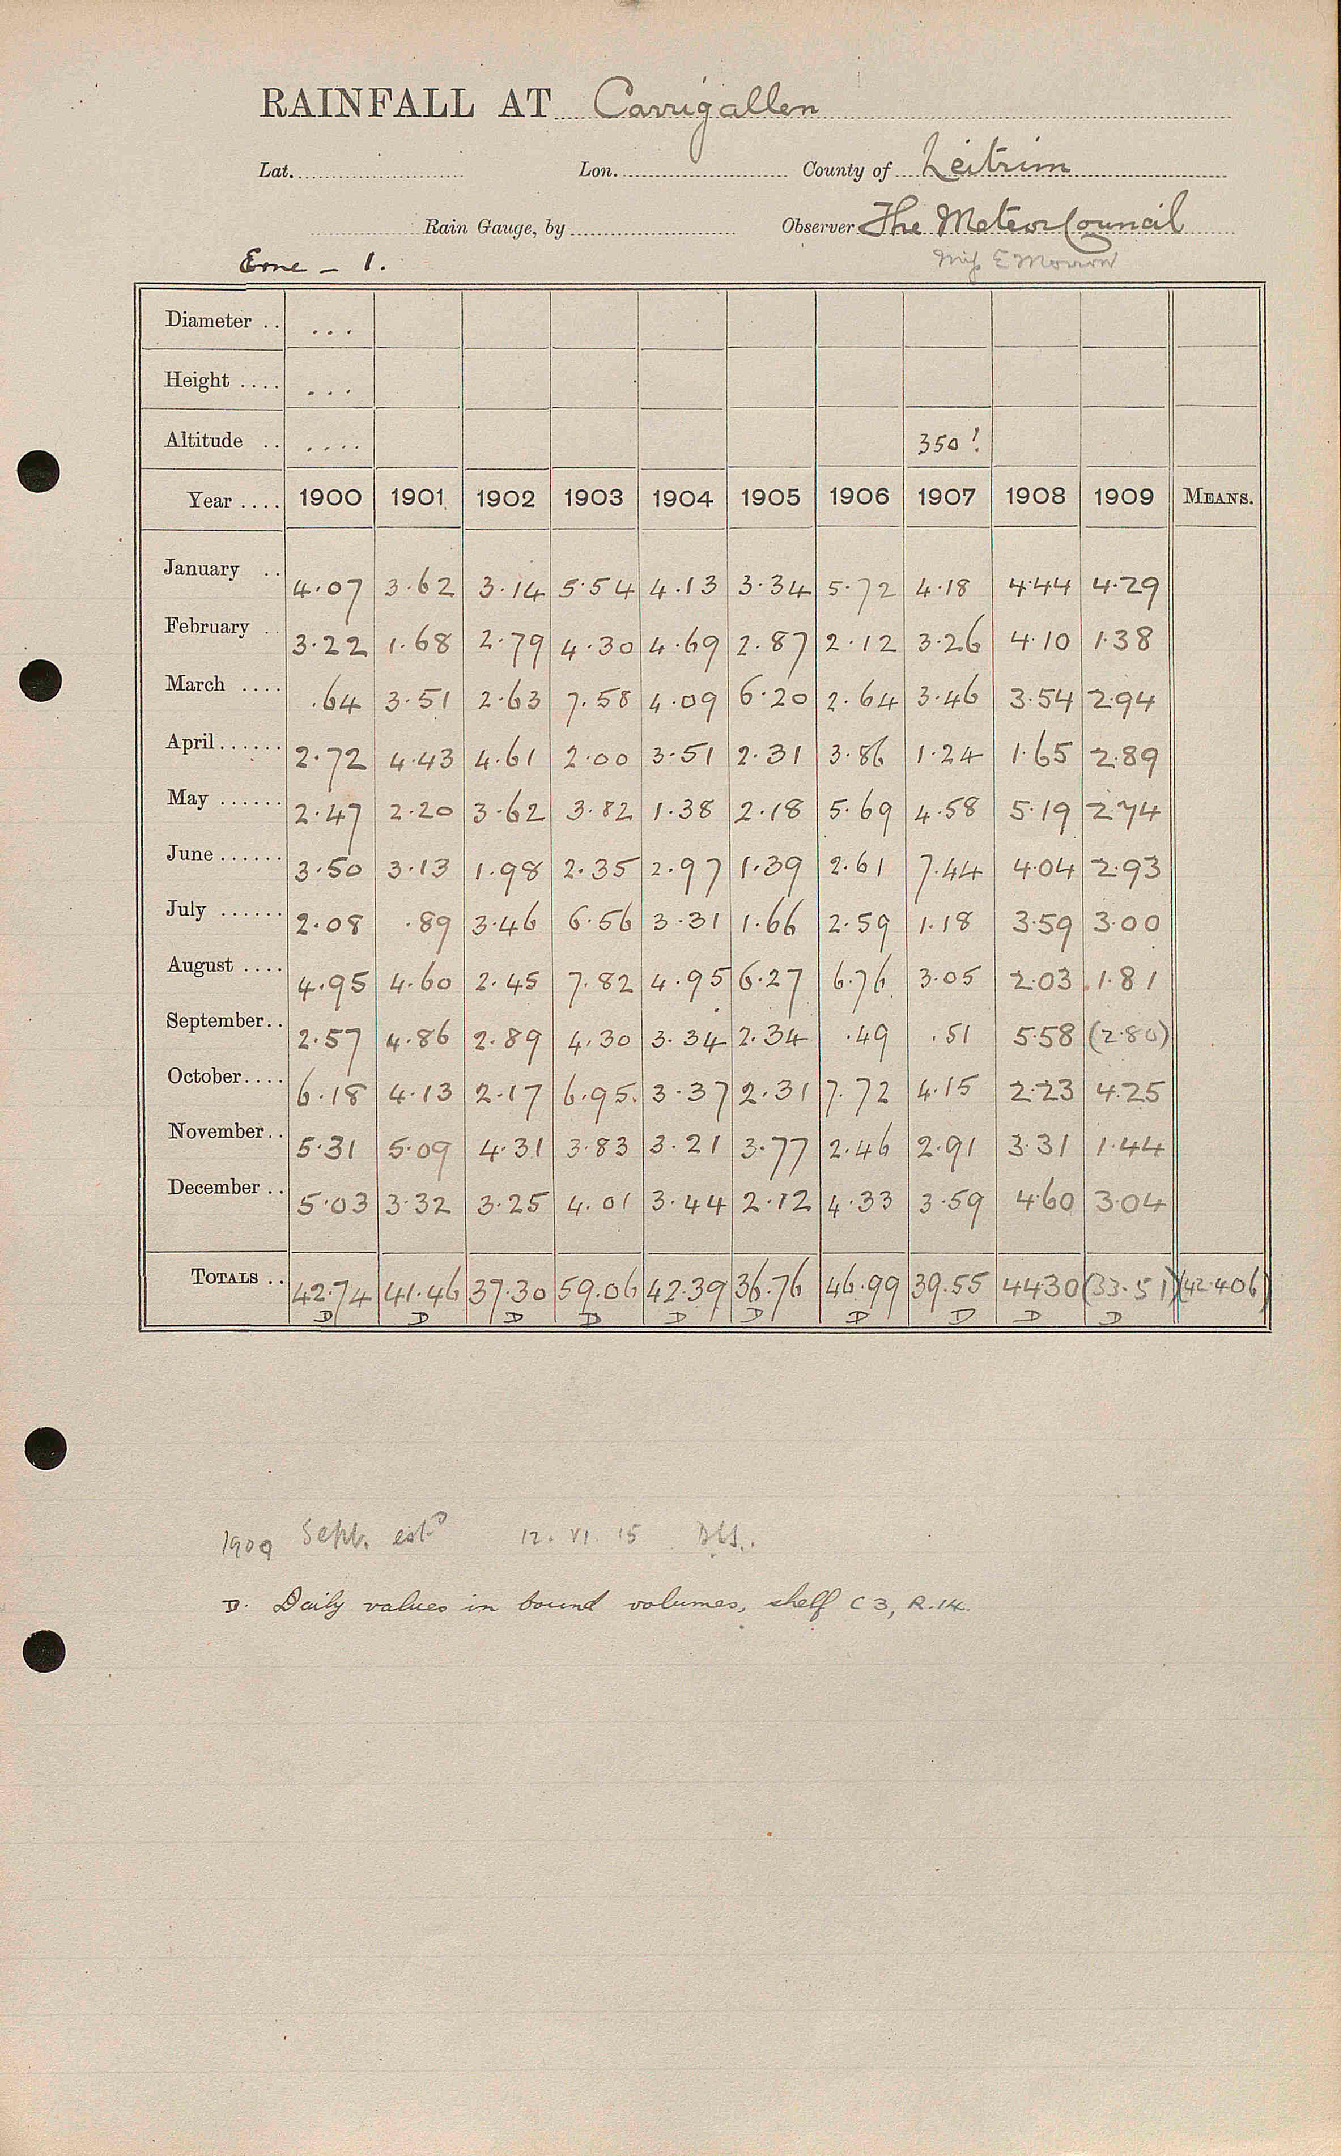 RAINFALL AT Carrigallen
Lat. Lon. County of Leitrim
Rain Gauge, by Observer The Meteor Council
Erne - 1. Miss E Morrow
Diameter .. ...
Height .... ...
Altitude .. .... 350!
Year .... 1900 1901 1902 1903 1904 1905 1906 1907 1908 1909 MEANS.
January .. 4.07 3.62 3.14 5.54 4.13 3.34 5.72 4.18 4.44 4.29
February . 3.22 1.68 2.79 4.30 4.69 2.87 2.12 3.26 4.10 1.38
March .... .64 3.51 2.63 7.58 4.09 6.20 2.64 3.46 3.54 2.94
April...... 2.72 4.43 4.61 2.00 3.51 2.31 3.86 1.24 1.65 2.89
May ...... 2.47 2.20 3.62 3.82 1.38 2.18 5.69 4.58 5.19 2.74
June ...... 3.50 3.13 1.98 2.35 2.97 1.39 2.61 7.44 4.04 2.93
July ...... 2.08 .89 3.46 6.56 3.31 1.66 2.59 1.18 3.59 3.00
August .... 4.95 4.60 2.45 7.82 4.95 6.27 6.76 3.05 2.03 1.81
September.. 2.57 4.86 2.89 4.30 3.34 2.34 .49 .51 5.58 (2.80)
October.... 6.18 4.13 2.17 6.95 3.37 2.31 7.72 4.15 2.23 4.25
November.. 5.31 5.09 4.31 3.83 3.21 3.77 2.46 2.91 3.31 1.44
December .. 5.03 3.32 3.25 4.01 3.44 2.12 4.33 3.59 4.60 3.04
TOTALS .. 42.74 41.46 37.30 59.06 42.39 36.76 46.99 39.55 44.30 (33.51) (42.406)
D D D D D D D D D D
1909 Sept. estd 12. VI. 15
D. Daily values in bound volumes, shelf C 3, R.14.